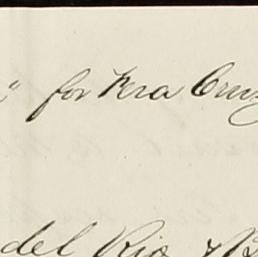 " for Vera Cruz
del Rio & B